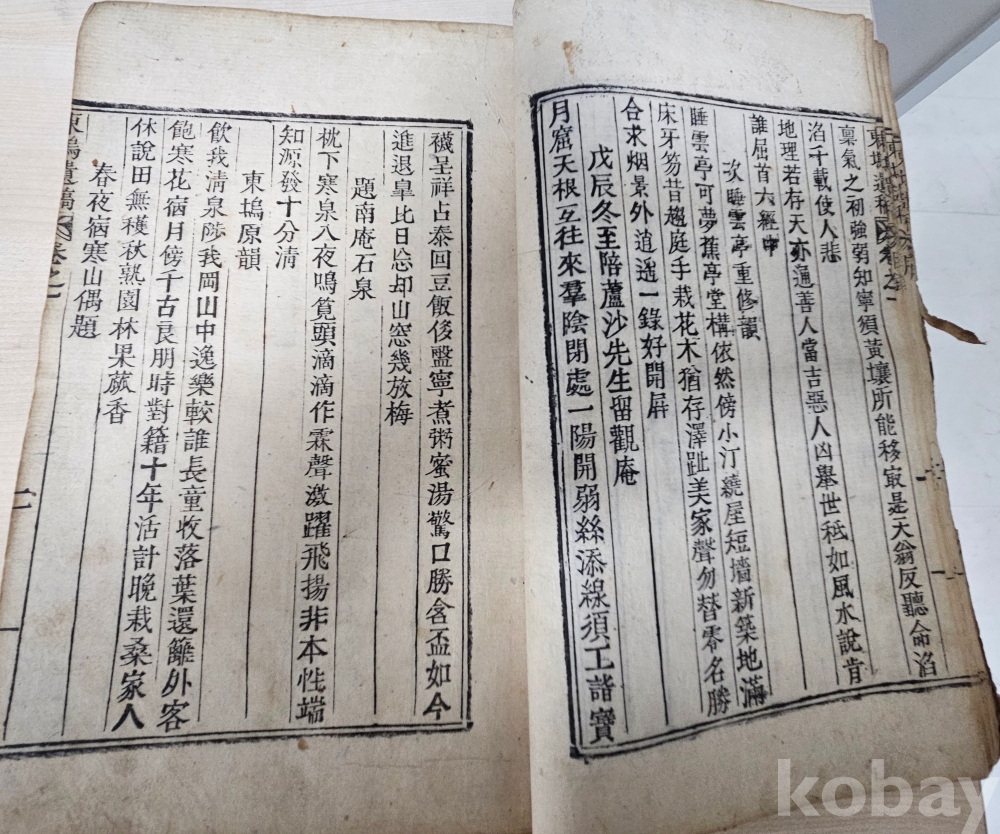 東塢遺稿 卷之一
稟氣之初強弱知寧須黃壤所能移最是天翁反聽命滔
滔千載使人悲
地理若存天亦通善人當吉惡人凶舉世秪如風水說肯
誰屈首六經中
次睡雲亭重修韻
睡雲亭可夢蕉亭堂構依然傍小汀繞屋短墻新築地滿
床牙笏昔趨庭手栽花木猶存澤趾美家聲勿替零名勝
合求烟景外逍遙一錄好開屛
戊辰冬至陪蘆沙先生留觀庵
月窟天根互往來羣陰閉處一陽開弱絲添線須工諧寶
襪呈祥占泰回豆飯侈盤寧煮粥蜜湯驚口勝含盃如今
進退皐比日忘却山窓幾放梅
題南庵石泉
枕下寒泉入夜鳴筧頭滴滴作霖聲激躍飛揚非本性端
知源發十分淸
東塢原韻
飮我淸泉陟我岡山中逸樂較誰長童收落葉還籬外客
飽寒花宿月傍千古良朋時對籍十年活計晚栽桑家人
休說田無穫秋熟園林果蓏香
春夜宿寒山偶題
東塢遺稿 卷之一
kobay